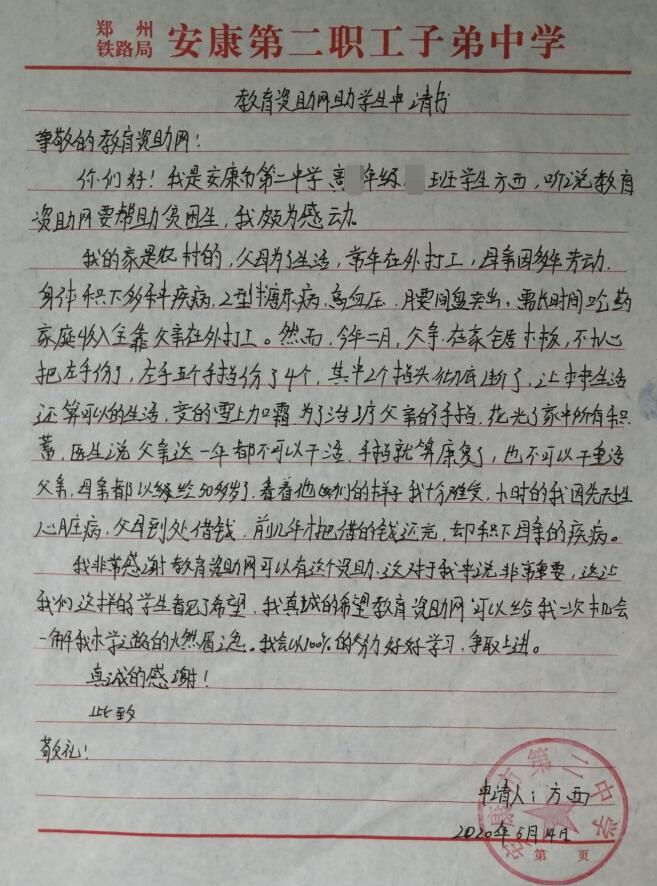 郑州
铁路局 安康第二职工子弟中学
教育资助网助学生申请书
尊敬的教育资助网：
你们好！我是安康市第二中学高 年级 班学生方西，听说教育
资助网要帮助贫困生，我颇为感动。
我的家是农村的，父母为了生活，常年在外打工，母亲因多年劳动
身体积下多种疾病，2型糖尿病，高血压，腰间盘突出，需长时间吃药
家庭收入全靠父亲在外打工。然而，今年二月，父亲在家锯木板，不小心
把左手伤了，左手五个手指伤了4个，其中2个指头彻底断了，让本来生活
还算可以的生活，变的雪上加霜为了治疗父亲的手指，花光了家中所有积
蓄，医生说父亲这一年都不可以干活，手指就算康复了，也不可以干重活
父亲，母亲都以经50多岁了，看着他们的样子我十分难受，小时的我因先天性
心脏病，父母到处借钱，前几年才把借的钱还完，却积下母亲的疾病。
我非常感谢教育资助网可以有这个资助，这对于我来说非常重要，这让
我们这样的学生看见了希望，我真诚的希望教育资助网可以给我一次机会
一解我求学之路的火燃眉之急。我会以100%的努力好好学习，争取上进。
真诚的感谢！
此致
敬礼！
申请人：方西
2020年5月14日
第 页
安康市第二中学